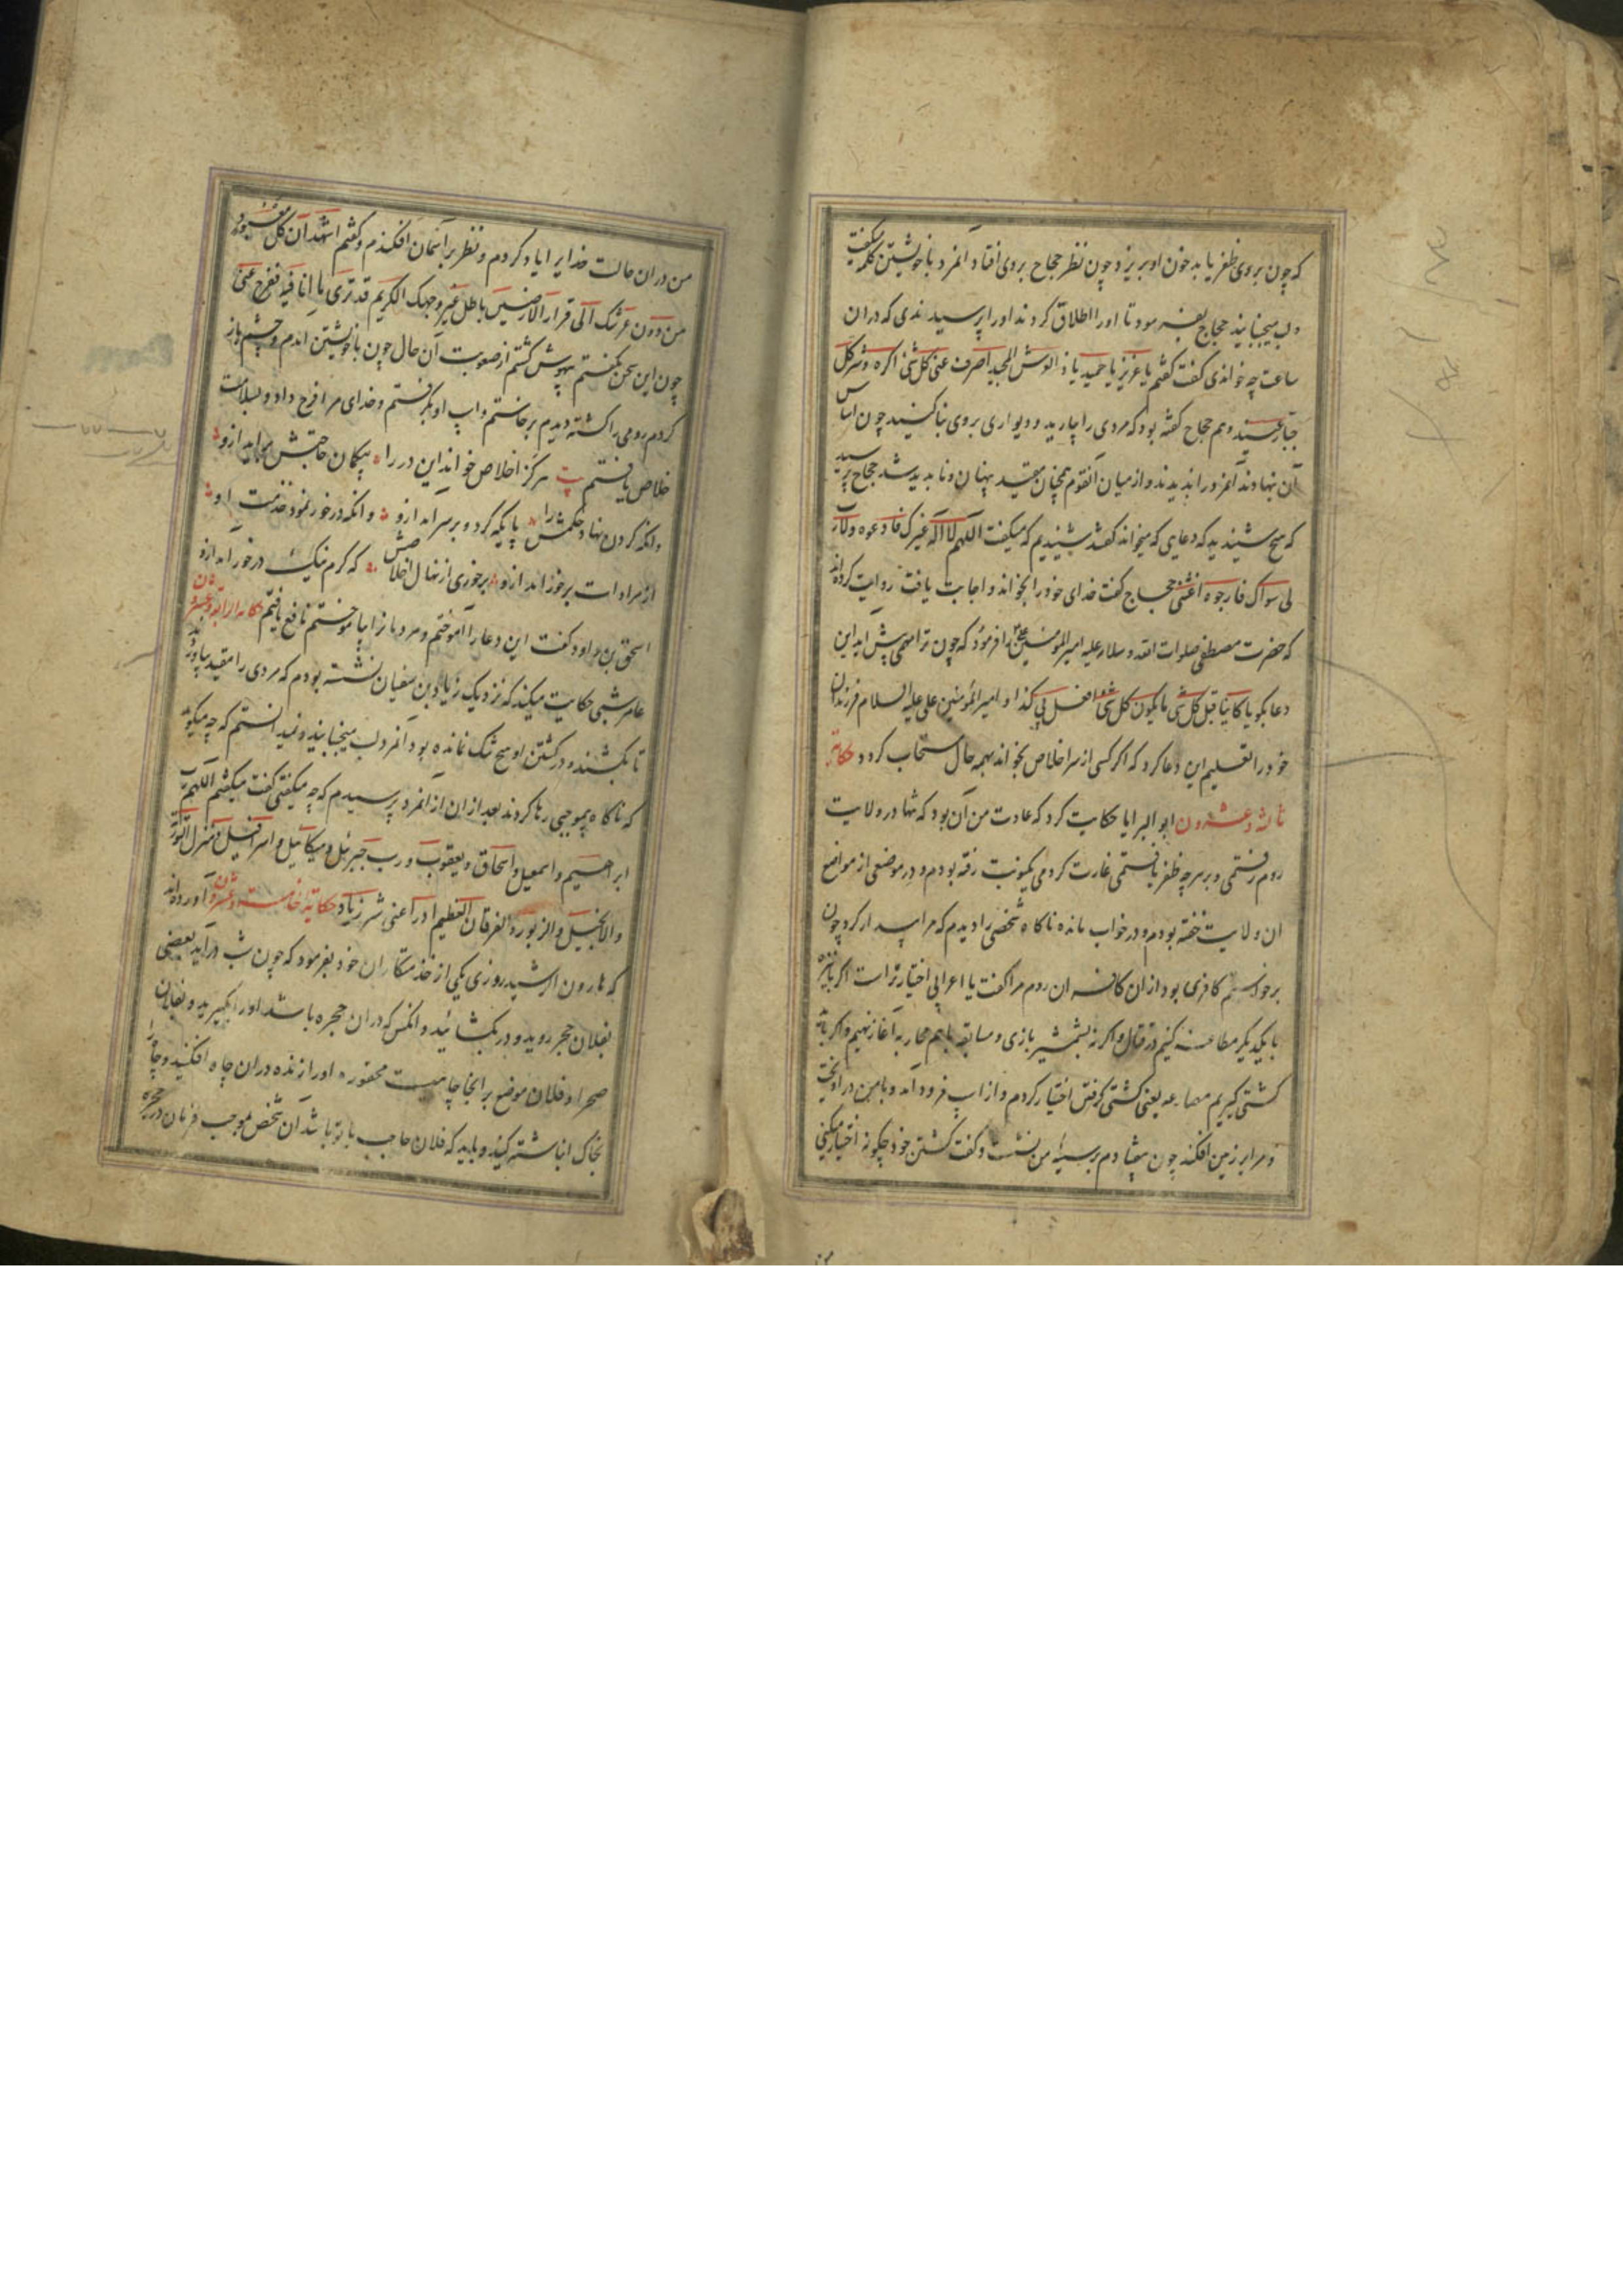 که چون بروی ظفر یابد خون او بریزد چون نظر حجاج بروی افتاد آنمرد با خویشتن کلمه میکفت
و لب میجنبانید حجاج بفرمود تا اورا اطلاق کردند اورا پرسیدندی که دران
ساعت چه خواندی کفت کفتم یا عزیز یا حمید یا ذا العرش المجید اصرف عنی کل شئ اکره و شر کل
جبار عنید و هم حجاج کفته بود که مردی را بیارید و دیواری بروی بنا کنید چون اساس
آن نهادند آنمرد را ندیدند و از میان آنقوم همچنان مقید پنهان و ناپدید شد حجاج پرسید
که هیچ شنیدید که دعایی که میخواند کفتند شنیدیم که میکفت اللهم لا اله غیرک فادعوه ولا رب
لی سواک فارجوه اغثنی حجاج کفت خدای خود را بخواند و اجابت یافت روایت کرده‌اند
که حضرت مصطفی صلوات الله و سلامه علیه امیر المومنین علی را فرمود که چون ترا مهمی پیش اید این
دعا بکو یا کاینا قبل کل شی یا مکون کل شی افعل بی کذا و امیر المؤمنین علی علیه السلام فرزندان
خود را تعلیم این دعا کرد که اکر کسی از سر اخلاص بخواند بهمه حال مستجاب کردد حکایة
ثالثه و عشرون ابو البرایا حکایت کرد که عادت من آن بود که تنها در ولایت
روم رفتمی و بر هر چه ظفر یافتمی غارت کردمی یکنوبت رفته بودم و در موضعی از مواضع
ان ولایت خفته بودم و در خواب مانده ناکاه شخصی را دیدم که مرا بیدار کرد چون
برخواستم کافری بود از ان کافران روم مرا کفت یا اعرابی اختیار تراست اکر بنیزه
با یکدیکر مطاعنه کنیم در قتال و اکر نه بشمشیر بازی و مسابقه باهم محاربه آغاز نهیم و اکر باید
کشتی کیریم مصارعه یعنی کشتی کرفتن اختیار کردم و از اسپ فرود آمد و با من در اویخت
و مرا بر زمین افکند چون بیفتادم بر سینهٔ من نشست و کفت کشتن خود چکونه اختیار میکنی
من در ان حالت خدایرا یاد کردم و نظر بر آسمان افکندم و کفتم اشهد ان کل معبود
من دون عرشک الی قرار الارضین باطل غیر وجهک الکریم قد تری ما انا فیه ففرج عنی
چون این سخن بکفتم بیهوش کشتم از صعوبت آن حال چون با خویشتن امدم و چشم باز
کردم رومی را کشته دیدم برخاستم و اسپ او بکرفتم و خدای مرا فرج داد و بسلامت
خلاص یافتم بیت هرکز اخلاص خواند این در را بیکمان حاجتش براید ازو
وانکه کردن نهاد حکمش را پایکه کرد و بر سر اید ازو و انکه در خور نمود خدمت او
از مرادات برخورد اید ازو برخوری از نهال اخلاصش که کرم نیک در خور اید ازو
اسحق بن داود کفت این دعا را آموختم و مردمانرا بیاموختم نافع یافتم حکایة الرابعة و عشرون
عامر شعبی حکایت میکند که نزدیک زیاد بن سفیان نشسته بودم که مردی را مقید بیاوردند
تا بکشند و در کشتن او هیچ شک نمانده بود آنمرد لب میجنبانید و نمیدانستم که چه میکوید
که ناکاه بیموجبی رها کردند بعد از ان از آنمرد پرسیدم که چه میکفتی کفت میکفتم اللهم رب
ابراهیم و اسمعیل و اسحاق و یعقوب و رب جبرئیل و میکائیل و اسرافیل و منزل التوریة
والانجیل والزبور والفرقان العظیم ادرأ عنی شر زیاد حکایة خامسه و عشرون آورده‌اند
که هارون الرشید روزی یکی از خدمتکاران خود بفرمود که چون شب درآید بعضی
بفلان حجره روید و در بکشائید و انکس که دران حجره باشد اورا بکیرید و بفلان
صحرا و فلان موضع بر انجا چاهیست محفوره اورا زنده دران چاه افکنید و چاه را
بخاک انباشته کنید و باید که فلان حاجب با تو باشد آن شخص بموجب فرمان در حجره